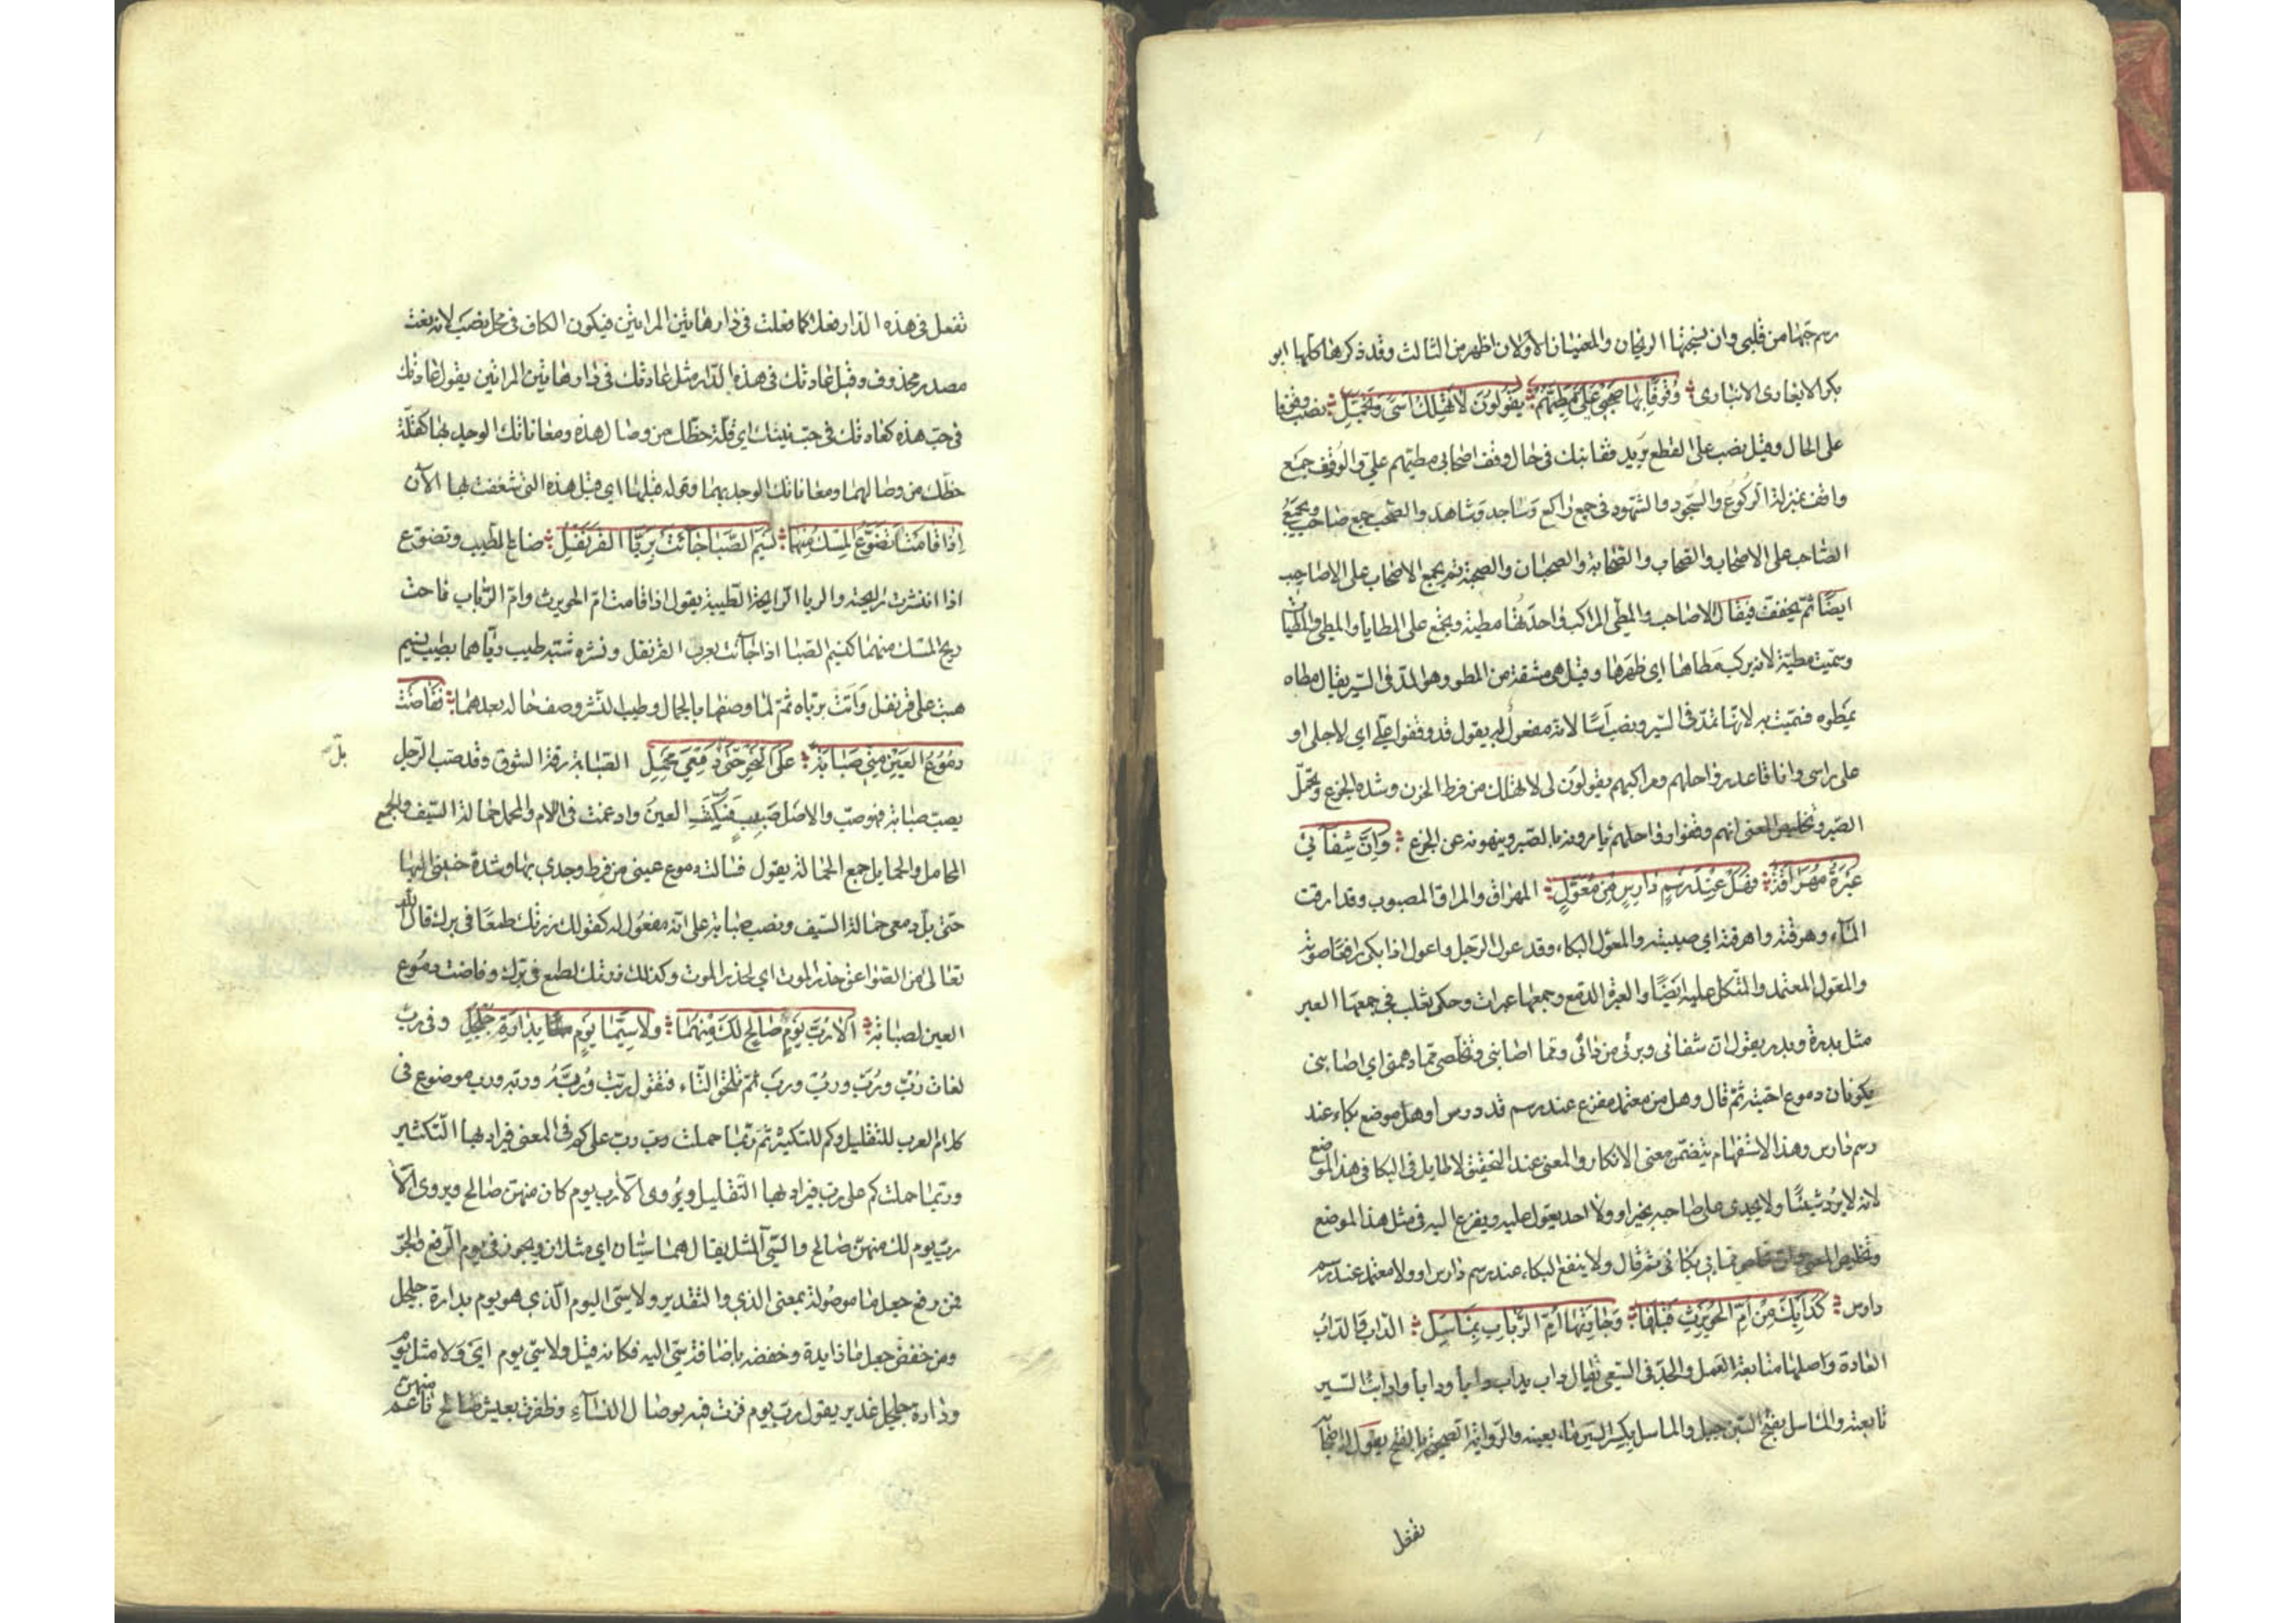 رسم حبها من قلبى وان نسجتها الريحان والمعنيان الاولان اظهر من الثالث وقد ذكرها كلها ابو
بكر الانبارى وُقُوفًا بِهَا صَحْبِى عَلَىَّ مَطِيَّهُمْ يَقُولُونَ لَا تَهْلِكْ اَسًى وَتَجَمَّلِ نصب وقوفا
على الحال وقيل نصب على القطع يريد قفا نبك فى حال وقف اصحابى مطيهم على والوقوف جمع
واقف بمنزلة الركوع والسجود والشهود فى جمع راكع وساجد وشاهد والصحب جمع صاحب ويجمع
الصاحب على الاصحاب والصحاب والصحابة والصحبان والصحبة ثم يجمع الاصحاب على الاصاحيب
ايضًا ثم يخفف فيقال الاصاحب والمطى المراكب واحدتها مطية ويجمع على المطايا والمطى والمطيات
وسميت مطية لانه يركب مطاها اى ظهرها وقيل هى مشتقة من المطو وهو المد فى السير يقال مطاه
يمطوه فسميت به لانها تمد فى السير ونصب اسًا لانه مفعول له يقول قد وقفوا على اى لاجلى او
على راسى وانا قاعد رواحلهم ومراكبهم ويقولون لى لا تهلك من فرط الحزن وشدة الجزع وتجمل
الصبر وتخليص المعنى انهم وقفوا رواحلهم يامرونه بالصبر وينهونه عن الجزع وَاِنَّ شِفَآئِى
عَبْرَةٌ مُهَرَاقَةٌ فَهَلْ عِنْدَ رَسْمٍ دَارِسٍ مِنْ مُعَوَّلِ المهراق والمراق المصبوب وقد ارقت
المآء وهرقته واهرقته اى صببته والمعول البكاء وقد عول الرجل واعول اذا بكى رافعًا صوته
والمعول المعتمد والمتكل عليه ايضًا والعبرة الدمع وجمعها عبرات وحكى ثعلب فى جمعها العبر
مثل بدرة وبدر يقول ان شفائى وبرئى من دائى ومما اصابنى وتخلصى مما دهمنى اى اصابنى
يكونان دموع اصبته ثم قال وهل من معتمد ومفزع عند رسم قد درس او هل موضع بكاء عند
رسم دارس وهذا الاستفهام يتضمن معنى الانكار والمعنى عند التحقيق لا طايل فى البكا فى هذا الموضع
لانه لا يرد شيئًا ولا يجدى على صاحبه بخير او ولا احد يعول عليه ويفزع اليه فى مثل هذا الموضع
وتخليص المعنى وان مخلصى مما بى بكائى ثم قال ولا ينفع البكاء عند رسم دارس او ولا معتمد عند رسم
دارس كَدَابِكَ مِنْ اُمِّ الْحُوَيْرِثِ قَبْلَهَا وَجَارَتِهَا اُمِّ الرَّبَابِ بِمَاسَلِ الداب والداب
العادة واصلها متابعة العمل والجد فى السعى يقال داب يداب دابا ودابا وادابت السير
تابعته والماسل بفتح السين جبل والماسل بكسر السين ماء بعينه والرواية الصحيحة بالفتح يقول
تفعل
تفعل فى هذه الدار فعلا كما فعلت فى دار هاتين المراتين فيكون الكاف فى محل نصب لانه نعت
مصدر محذوف وقيل عادتك فى هذه الدار مثل عادتك فى دار هاتين المراتين يقول عادتك
فى حب هذه كعادتك فى حب تينك اى قلة حظك من وصال هذه ومعاناتك الوجد بها كقلة
حظك من وصالهما ومعاناتك الوجد بهما وقوله قبلها اى قبل هذه التى شغفت بها الآن
اِذَا قَامَتَا تَضَوَّعَ الْمِسْكُ مِنْهُمَا نَسِيْمَ الصَّبَا جَائَتْ بِرَيَّا الْقَرَنْفُلِ ضاع الطيب وتضوع
اذا انتشرت رايحته والريا الرايحة الطيبة يقول اذا قامت ام الحويرث وام الرباب فاحت
ريح المسك منهما كنسيم الصبا اذا جائت بعرف القرنفل ونشره شبه طيب رياهما بطيب نسيم
هبت على قرنفل واتت برياه ثم لما وصفهما بالجمال وطيب النشر وصف حاله بعدهما فَفَاضَتْ
دُمُوْعُ الْعَيْنِ مِنِّى صَبَابَةً عَلَى النَّحْرِ حَتّٰى دَمْعِىَ مِحْمَلِى الصبابة رقة الشوق وقد صب الرجل
بلّ صح
يصب صبابة فهو صب والاصل صبب فسكنت العين وادغمت فى اللام والمحمل حمالة السيف والجمع
المحامل والحمايل جمع الحمالة يقول فسالت دموع عينى من فرط وجدى بهما وشدة حنينى اليهما
حتى بل دمعى حمالة السيف ونصب صبابة على انه مفعول له كقولك زرتك طمعًا فى برك قال الله
تعالى من الصواعق حذر الموت اى لحذر الموت وكذلك زرتك لطمع فى برك وفاضت دموع
العين لصبابة اَلَا رُبَّ يَوْمٍ صَالِحٍ لَكَ مِنْهُمَا وَلَا سِيَّمَا يَوْمٍ بِدَارَةِ جُلْجُلِ وفى رب
لغات رُبّ ورُبَ ورُبُ ورب ثم تلحق التاء فتقول ربت ورُبَّهُ وربه ورب موضوع فى
كلام العرب للتقليل وكم للتكثير ثم ربما حملت رب على كم فى المعنى فيراد بها التكثير
وربما حملت كم على رب فيراد بها التقليل ويروى الا رب يوم كان منهن صالح ويروى الا
رب يوم لك منهن صالح والسى المثل يقال هما سيان اى مثلان ويجوز فى يوم الرفع والجر
فمن رفع جعل ما موصولة بمعنى الذى والتقدير ولا سى اليوم الذى هو يوم بدارة جلجل
ومن خفض جعل ما زايدة وخفضه باضافة سى اليه فكانه قيل ولا سى يوم اى ولا مثل يوم
ودارة جلجل غدير يقول رب يوم فزت فيه بوصال النسآء وظفرت بعيش صالح ناعم منهن